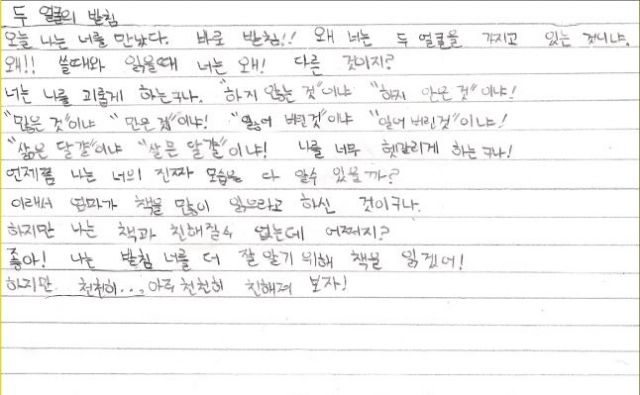 두 얼굴의 받침
오늘 나는 너를 만났다. 바로 받침!! 왜 너는 두 얼굴을 가지고 있는 것이냐.
왜!! 쓸때와 읽을때 너는 왜! 다른 것이지?
너는 나를 괴롭게 하는구나. "하지 않는 것"이냐 "하지 안은 것"이냐!
"많은 것"이냐 "만은 것"이냐! "잃어 버린것"이냐 "일어 버린것"이냐!
"삶은 달걀"이냐 "살믄 달걀"이냐! 나를 너무 헷갈리게 하는구나!
언제쯤 나는 너의 진짜 모습을 다 알수 있을까?
이래서 엄마가 책을 많이 읽으라고 하신 것이구나.
하지만 나는 책과 친해질수 없는데 어쩌지?
좋아! 나는 받침 너를 더 잘 알기 위해 책을 읽겠어!
하지만 천천히..., 아주 천천히 친해져 보자!